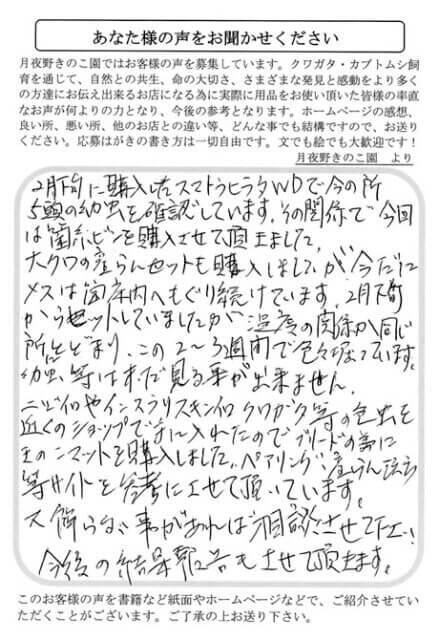 あなた様の声をお聞かせください
月夜野きのこ園ではお客様の声を募集しています。クワガタ・カブトムシ飼
育を通じて、自然との共生、命の大切さ、さまざまな発見と感動をより多く
の方達にお伝え出来るお店になる為に実際に用品をお使い頂いた皆様の率直
なお声が何よりの力となり、今後の参考となります。ホームページの感想、
良い所、悪い所、他のお店との違い等、どんな事でも結構ですので、お送り
ください。応募はがきの書き方は一切自由です。文でも絵でも大歓迎です！
月夜野きのこ園 より
2月下旬に購入したスマトラヒラタWDで今の所
5頭の幼虫を確認しています。その関係で今回
は菌糸ビンを購入させて頂きました。
大クワの産らんセットも購入しましたが今だに
メスは 内へもぐり続けています。2月下旬
からセットしていましたが 温度の関係か同じ
所にとどまり、この2〜3週間で色々掘っています。
幼虫等は未だ見る事が出来ません。
ニジイロやインスラリスキンイロクワガタ等の色虫を
近くのショップで手に入れたのでブリードの為に
マットを購入しました。ペアリング 産らん方法
等サイトを参考にさせて頂いています。
又 解らない事があれば相談させて下さい！
今後の結果報告もさせて頂きます。
このお客様の声を書籍など紙面やホームページなどで、ご紹介させてい
ただくことがございます。ご了承の上お送り下さい。